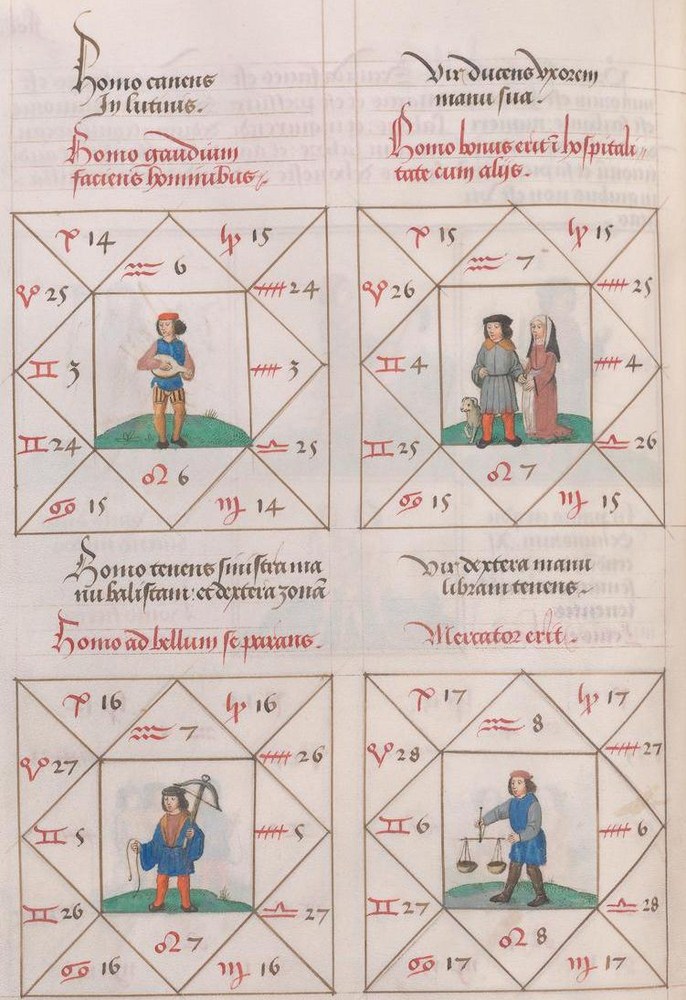 Homo canens
In lutinis.
Homo gaudium
faciens hominibus.
♓ 14
♑ 15
♒ 6
♈ 25
♐ 24
♊ 3
♐ 3
♊ 24
♎ 25
♌ 6
♋ 15
♍ 14
Vir ducens vxorem
manu sua.
Homo bonus erit ī hospitali-
tate cum alijs.
♓ 15
♑ 15
♒ 7
♈ 26
♐ 25
♊ 4
♐ 4
♊ 25
♎ 26
♌ 7
♋ 15
♍ 15
Homo tenens sinistra ma
nu balistam: et dextera zonā
Homo ad bellum se parans.
♓ 16
♑ 16
♒ 7
♈ 27
♐ 26
♊ 5
♐ 5
♊ 26
♎ 27
♌ 7
♋ 16
♍ 16
Vir dextera manu
libram tenens.
Mercator erit.
♓ 17
♑ 17
♒ 8
♈ 28
♐ 27
♊ 6
♐ 6
♊ 27
♎ 28
♌ 8
♋ 17
♍ 17